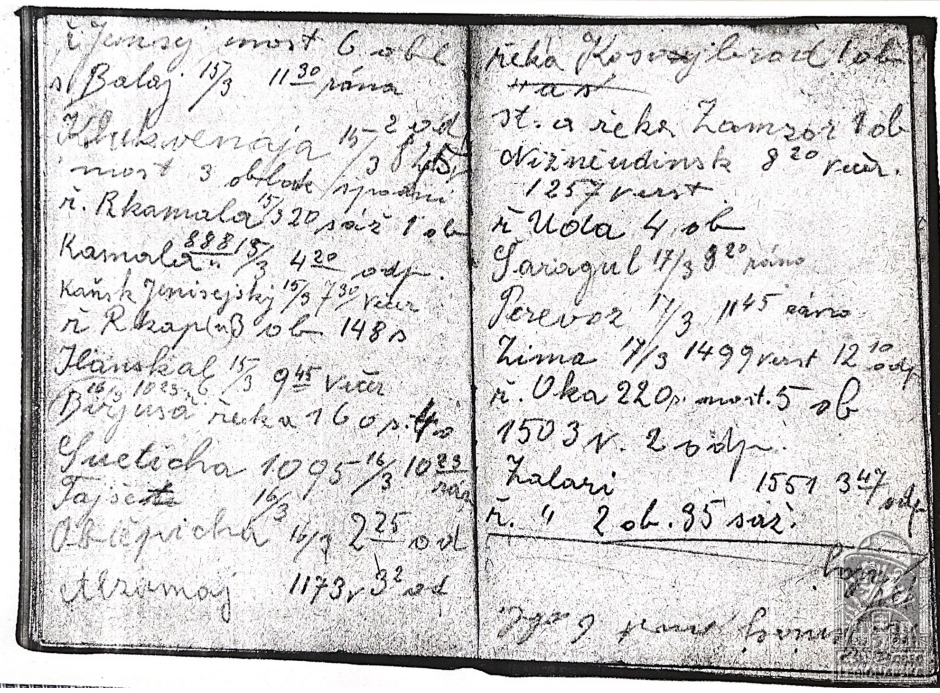 ř Jenisej most 6 obl
s Balaj 15/3 11 30 rána
Klukvenaja 15/3 2 od
most 3 oblouk spodní
ř. Rkamala 15/3 20 sáž 1 ob
Kamala 888 15/3 4 20 odp.
Kaňsk Jenisejský 15/3 7 30 večer
ř Rkap 3 ob 148 s
Ilanskal 15/3 9 45 večer
16/3 1023
Birjusá řeka 160 s. 4 o
Sueticha 1095 16/3 10 23 rán
Tajšet 16/3
Oblěpicha 16/3 2 25 od
Alzamaj 1173 v 3 2 od
řeká Kosoyjbrod 1 ob
st. a řeka Zamzor 1 ob
Nižněudinsk 8 20 več.
1257 verst
ř Uda 4 ob
Šaragul 17/3 8 20 ráno
Perevoz 17/3 11 45 ráno
Zima 17/3 1499 verst 12 10 odp
ř. Oka 220 s. most. 5 ob
1503 v. 2 odp.
Zalari 1551 3 47 odp
ř. " 2 ob. 35 sáž.